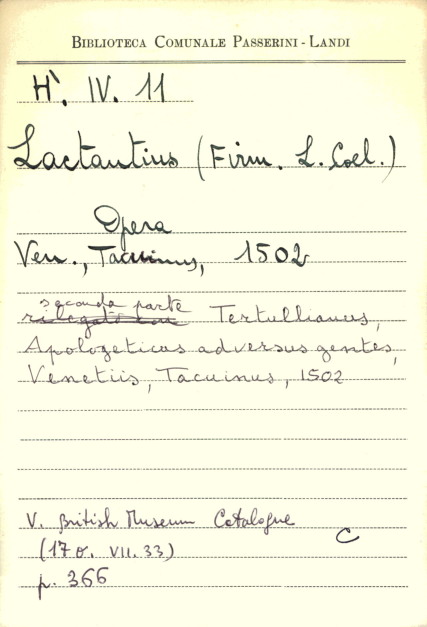 BIBLIOTECA COMUNALE PASSERINI - LANDI
H`. IV. 11
Lactantius (Firm. L. Coel.)
Opera
Ven., Tacuinus, 1502
seconda parte
rilegato con Tertullianus,
Apologeticus adversus gentes,
Venetiis, Tacuinus, 1502
V. British Museum Catalogue
(17 o. VII. 33)
C
p. 366